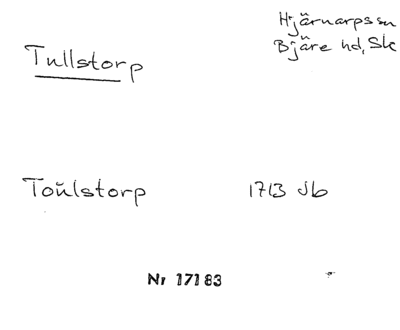 Hjärnarps sn
Bjäre hd, Sk
Tullstorp
Toŭlstorp 1713 Jb
Nr 17183